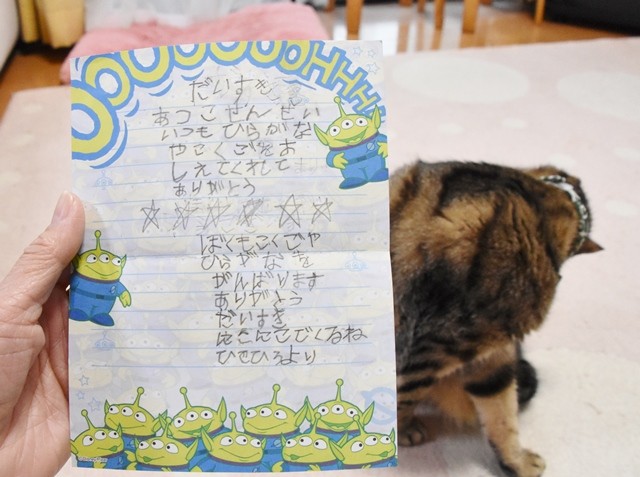 OOOOOOOOHHHH
だいすき
あつこせんせい
いつもひらがな
やこくごをお
しえてくれて
ありがとう
☆☆☆☆☆☆
ぼくもこくごや
ひらがなを
がんばります
ありがとう
だいすき
こんでくるね
ひでひろより